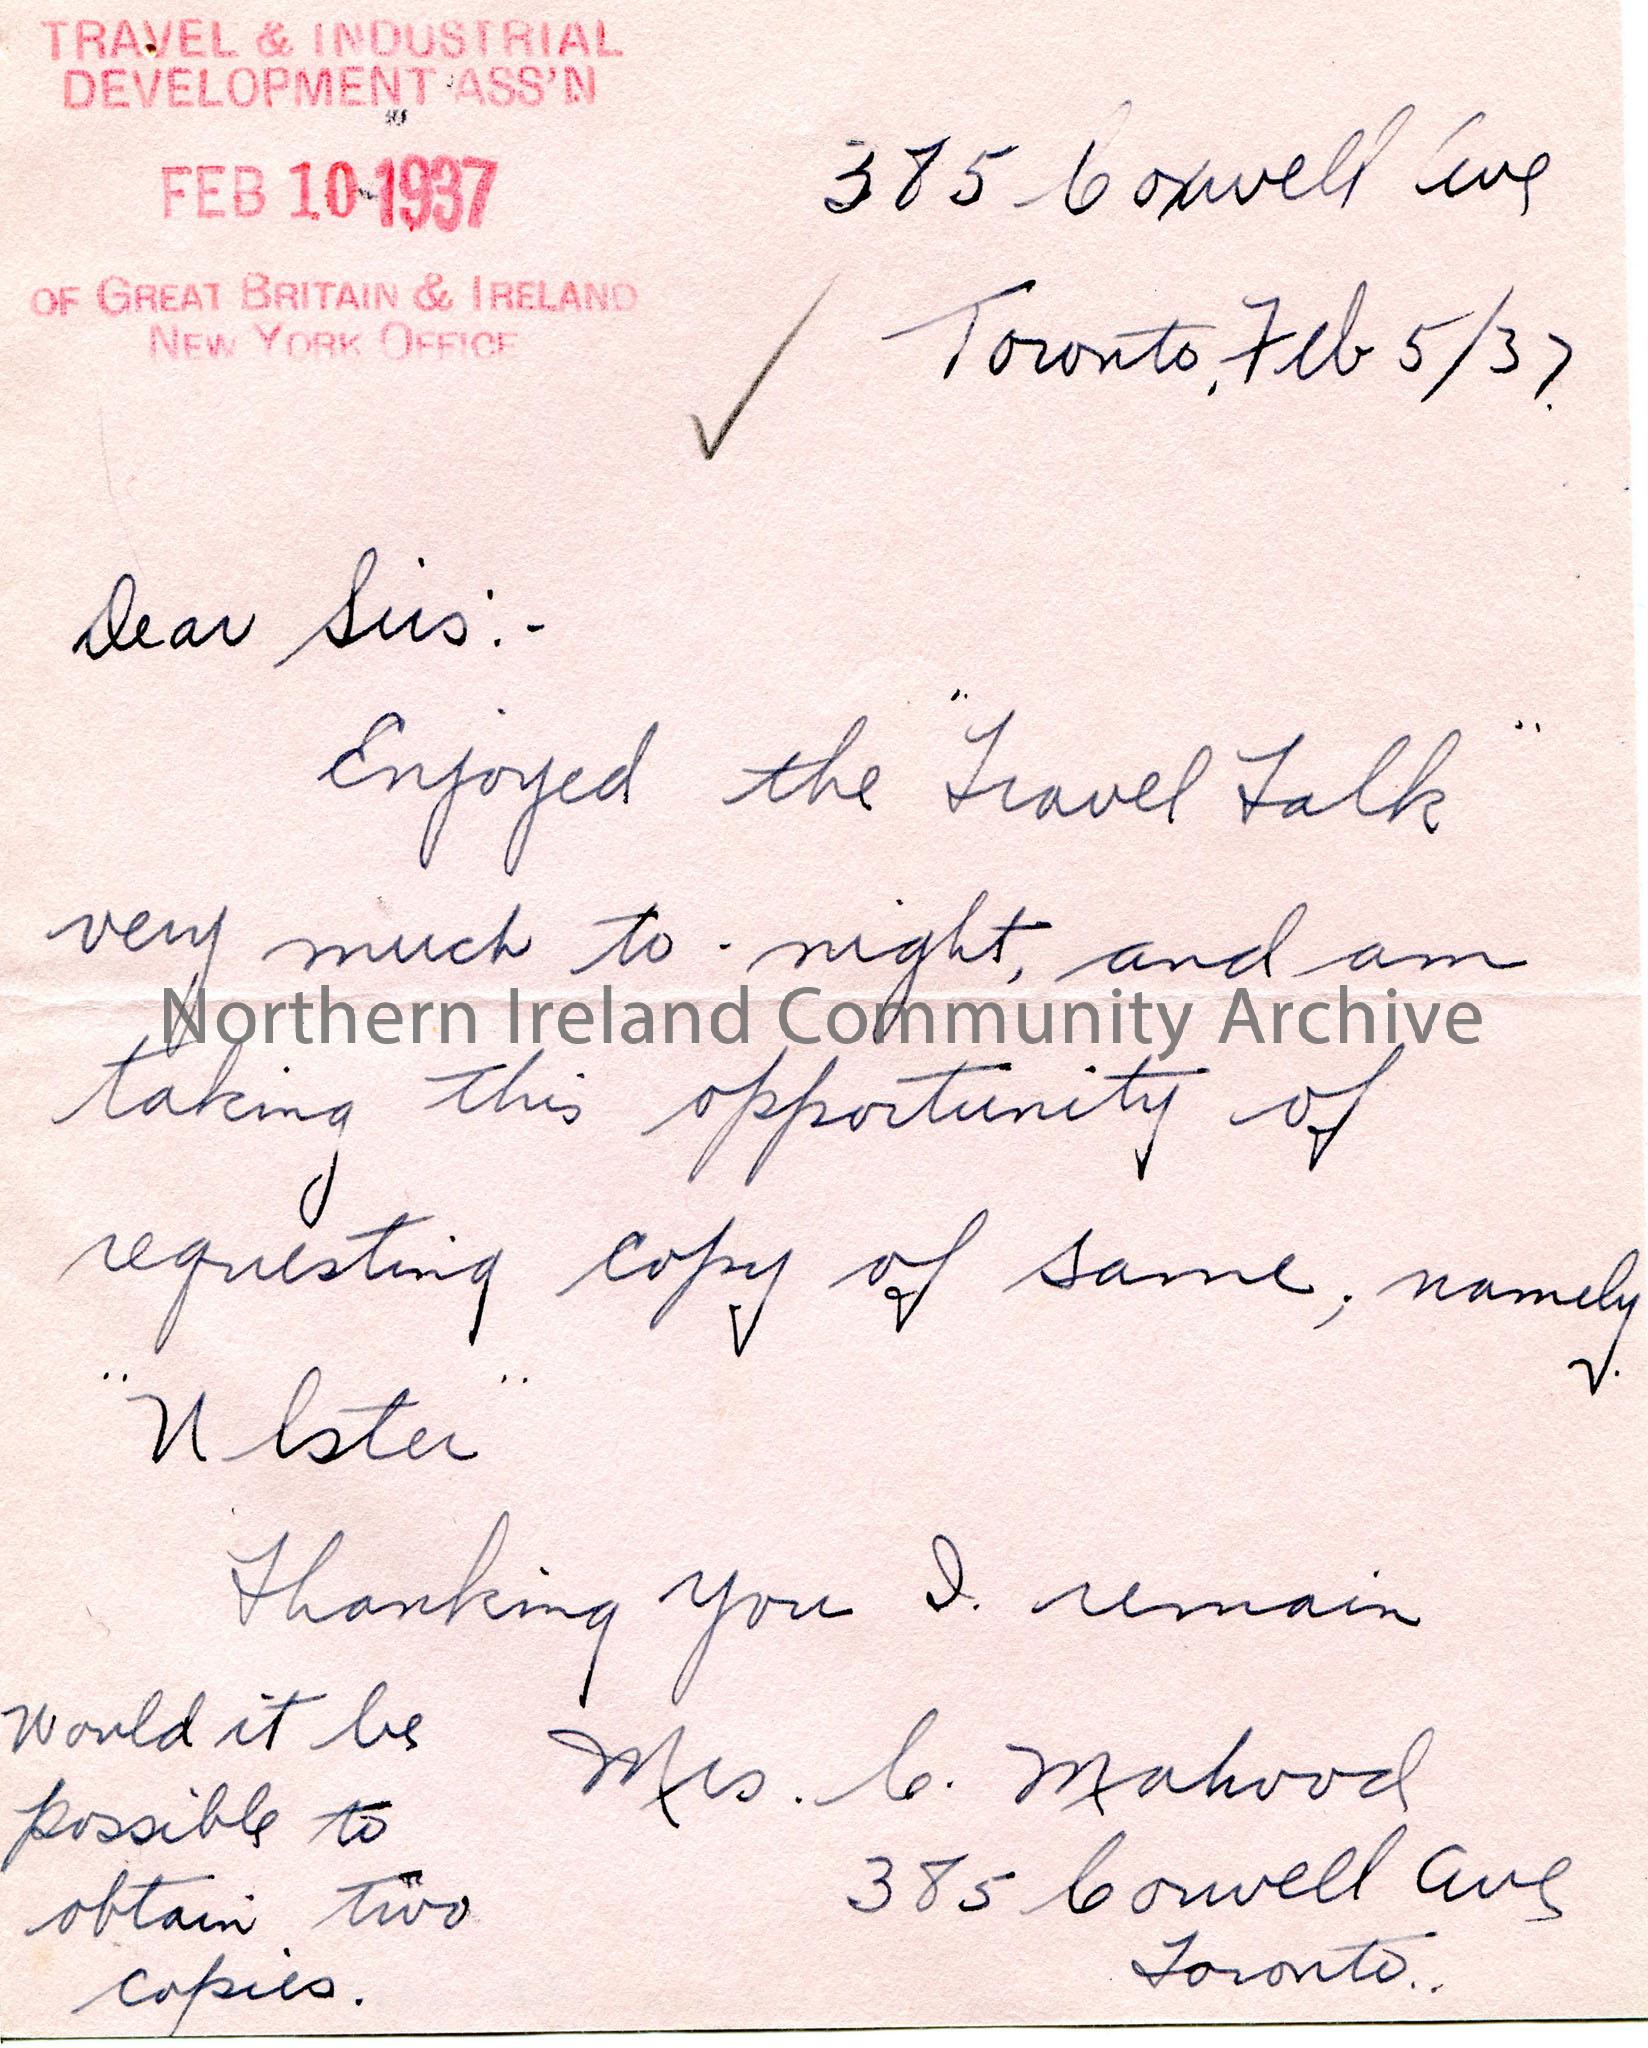 TRAVEL & INDUSTRIAL
DEVELOPMENT ASS'N
FEB 10 1937
OF GREAT BRITAIN & IRELAND
NEW YORK OFFICE
385 Coxwell Ave
Toronto, Feb 5/37.
Dear Sirs:-
Enjoyed the "Travel Talk"
very much to-night, and am
Northern Ireland Community Archive
taking this opportunity of
requesting copy of same, namely
"Ulster"
Thanking you I. remain
Mrs. C. Mahood
385 Coxwell Ave
Toronto..
Would it be
possible to
obtain two
copies.